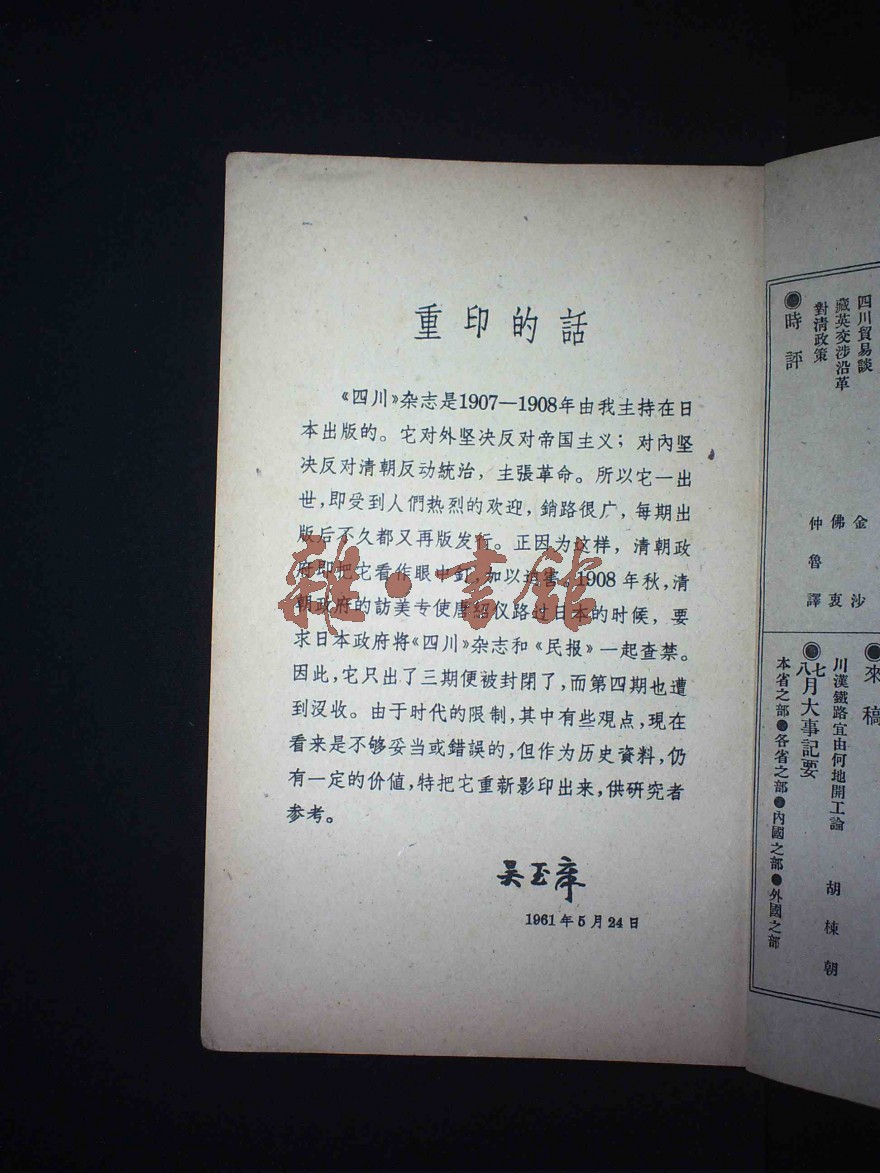 重印的話
《四川》杂志是1907—1908年由我主持在日
本出版的。它对外坚决反对帝国主义；对內坚
决反对清朝反动統治，主張革命。所以它一出
世，即受到人們热烈的欢迎，銷路很广，每期出
版后不久都又再版发行。正因为这样，清朝政
府即把它看作眼中釘，加以迫害。1908年秋，清
朝政府的訪美专使唐紹仪路过日本的时候，要
求日本政府将《四川》杂志和《民报》一起查禁。
因此，它只出了三期便被封閉了，而第四期也遭
到沒收。由于时代的限制，其中有些观点，現在
看来是不够妥当或錯誤的，但作为历史資料，仍
有一定的价値，特把它重新影印出来，供研究者
参考。
吴玉章
1961年5月24日
雜·書館
四川貿易談 金沙
藏英交涉沿革 佛衷
對清政策 仲魯譯
●時評
●來稿
川漢鐵路宜由何地開工論 胡棟朝
●七八月大事記要
本省之部●各省之部●內國之部●外國之部